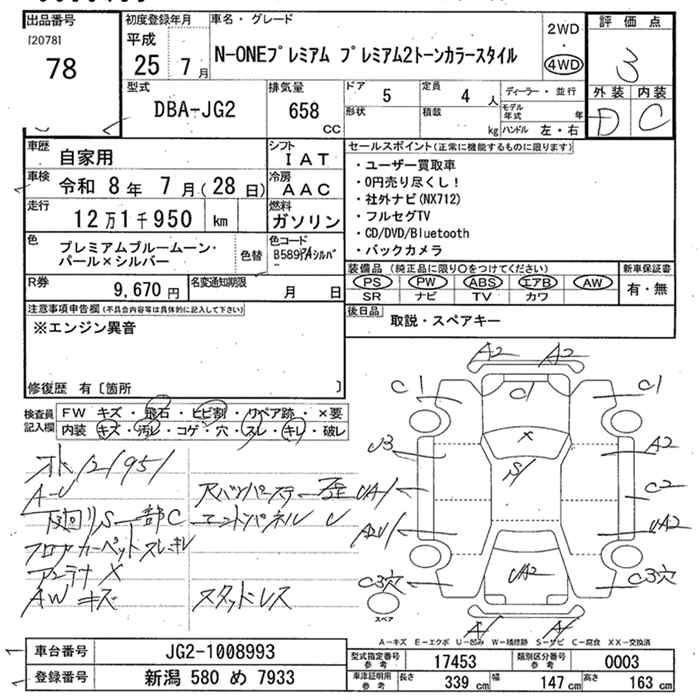 出品番号
[2078]
78
初度登録年月
平成
25年 7月
車名・グレード
N-ONEプレミアム プレミアム2トーンカラースタイル
2WD
・
4WD
評価点
3
外装 内装
D C
型式
DBA-JG2
排気量
658
CC
ドア
5
定員
4 人
形状
積載
kg
ディーラー・並行
モデル年式 年
ハンドル 左・右
車歴
自家用
シフト
IAT
車検
令和 8年 7月(28日)
冷房
AAC
走行
12万1千950 km
燃料
ガソリン
色
プレミアムブルームーン・
パール×シルバー
色替
色コード
B589PAシルバ
-
R券
9,670 円
名変通知期限
月 日
セールスポイント(正常に機能するものに限ります)
・ユーザー買取車
・0円売り尽くし!
・社外ナビ(NX712)
・フルセグTV
・CD/DVD/Bluetooth
・バックカメラ
装備品 (純正品に限り○をつけてください)
PS PW ABS エアB AW
SR ナビ TV カワ
新車保証書
有・無
後日品
取説・スペアキー
注意事項申告欄(不具合内容等は具体的に記入して下さい)
※エンジン異音
修復歴 有〔箇所 〕
検査員
記入欄
FW キズ・飛石・ヒビ割・リペア跡・×要
内装 キズ・汚レ・コゲ・穴・スレ・キレ・破レ
A-U
下廻りS 一部C
フロアカーペットスレキレ
アンテナ×
AWキズ
エンドパネル U
スタッドレス
A2 A2
C1 C1 C1
×
S1
U3 A2
UA1 C2
A2U1 UA2
C3穴 UA2 C3穴
A1 A1
スペア
A-キズ E-エクボ U-凹み W-補修跡 S-サビ C-腐食 XX-交換済
車台番号
JG2-1008993
登録番号
新潟 580 め 7933
型式指定番号
参考
17453
類別区分番号
参考
0003
車庫証明用
参考
長さ 339 cm 幅 147 cm 高さ 163 cm